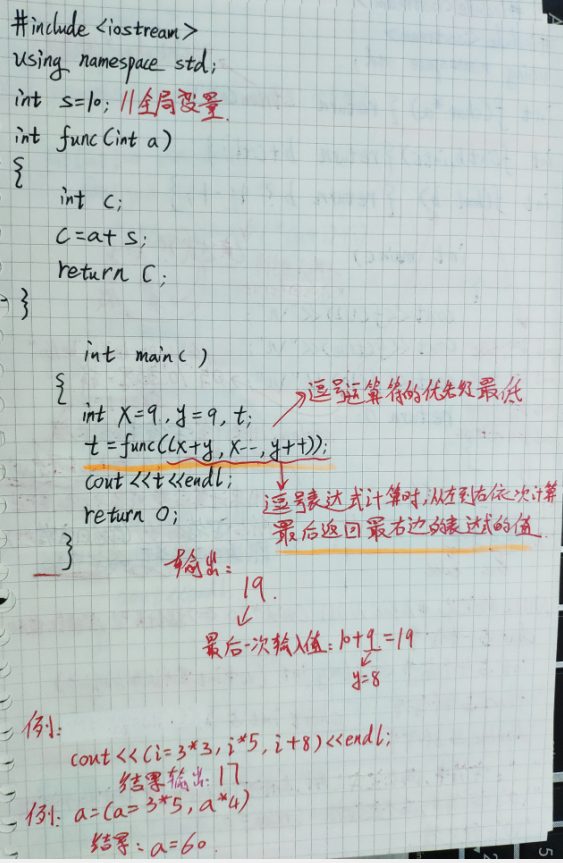 #include <iostream>
using namespace std;
int s=10; //全局变量.
int func(int a)
{
int c;
c=a+s;
return c;
}
int main()
{
→逗号运算符的优先级最低
int x=9,y=9,t;
t=func((x+y,x--,y++));
cout<<t<<endl;
逗号表达式计算时,从左到右依次计算
return 0;
最后返回最右边的表达式的值
}
输出:
19.
最后一次输入值:10+9=19
y=8
例:
cout<<(i=3*3,i*5,i+8)<<endl;
结果输出:17
例:a=(a=3*5,a*4)
结果:a=60.
5